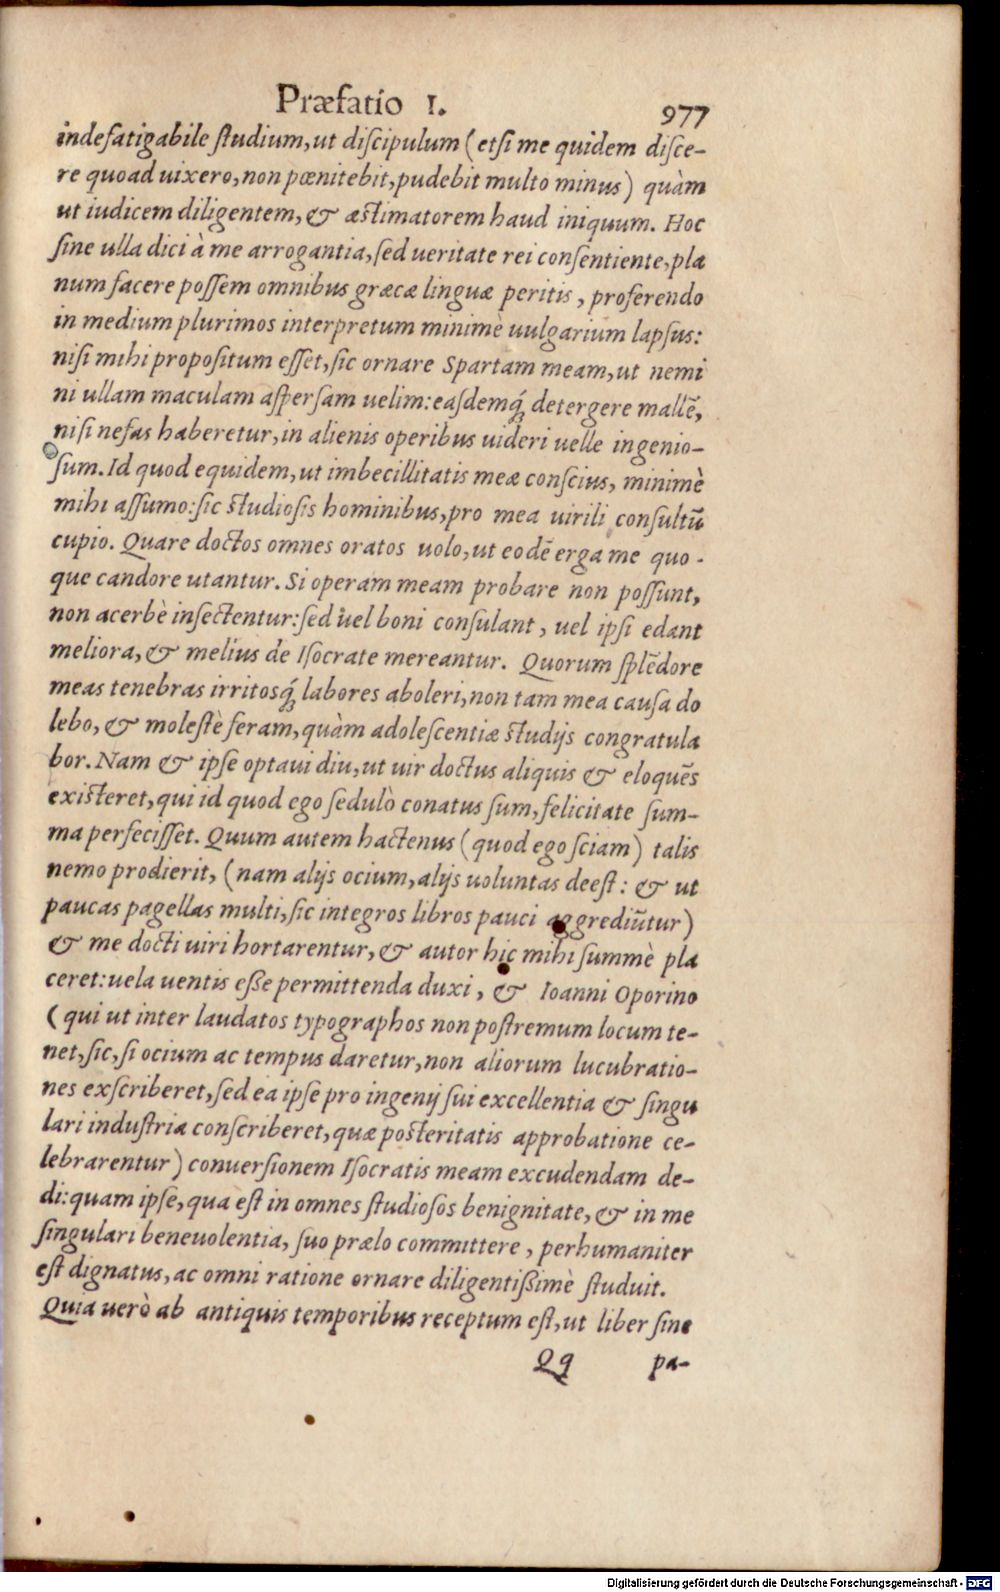 Præfatio I. 977
indefatigabile ſtudium, ut diſcipulum (etſi me quidem diſce-
re quoad uixero, non pœnitebit, pudebit multo minus) quàm
ut iudicem diligentem, & æſtimatorem haud iniquum. Hoc
ſine ulla dici à me arrogantia, ſed ueritate rei conſentiente, pla
num facere poſſem omnibus græcæ linguæ peritis, proferendo
in medium plurimos interpretum minimè uulgarium lapſus:
niſi mihi propoſitum eſſet, ſic ornare Spartam meam, ut nemi
ni ullam maculam aſperſam uelim: eaſdemq́; detergere mallē,
niſi nefas haberetur, in alienis operibus uideri uelle ingenio-
ſum. Id quod equidem, ut imbecillitatis meæ conſcius, minimè
mihi aſſumo: ſic ſtudioſis hominibus, pro mea uirili conſultū
cupio. Quare doctos omnes oratos uolo, ut eodē erga me quo-
que candore utantur. Si operam meam probare non poſſunt,
non acerbè inſectentur: ſed uel boni conſulant, uel ipſi edant
meliora, & melius de Iſocrate mereantur. Quorum ſplēdore
meas tenebras irritosq́; labores aboleri, non tam mea cauſa do
lebo, & moleſtè feram, quàm adoleſcentiæ ſtudijs congratula
bor. Nam & ipſe optaui diu, ut uir doctus aliquis & eloquēs
exiſteret, qui id quod ego ſedulò conatus ſum, felicitate ſum-
ma perfeciſſet. Quum autem hactenus (quod ego ſciam) talis
nemo prodierit, (nam alijs ocium, alijs uoluntas deeſt: & ut
paucas pagellas multi, ſic integros libros pauci aggrediūtur)
& me docti uiri hortarentur, & autor hic mihi ſummè pla
ceret: uela uentis eße permittenda duxi, & Ioanni Oporino
(qui ut inter laudatos typographos non poſtremum locum te-
net, ſic, ſi ocium ac tempus daretur, non aliorum lucubratio-
nes exſcriberet, ſed ea ipſe pro ingenij ſui excellentia & ſingu
lari induſtria conſcriberet, quæ poſteritatis approbatione ce-
lebrarentur) conuerſionem Iſocratis meam excudendam de-
di: quam ipſe, qua eſt in omnes ſtudioſos benignitate, & in me
ſingulari beneuolentia, ſuo prælo committere, perhumaniter
eſt dignatus, ac omni ratione ornare diligentißimè ſtuduit.
Quia uerò ab antiquis temporibus receptum eſt, ut liber ſine
Qq pa-
Digitalisierung gefördert durch die Deutsche Forschungsgemeinschaft - DFG